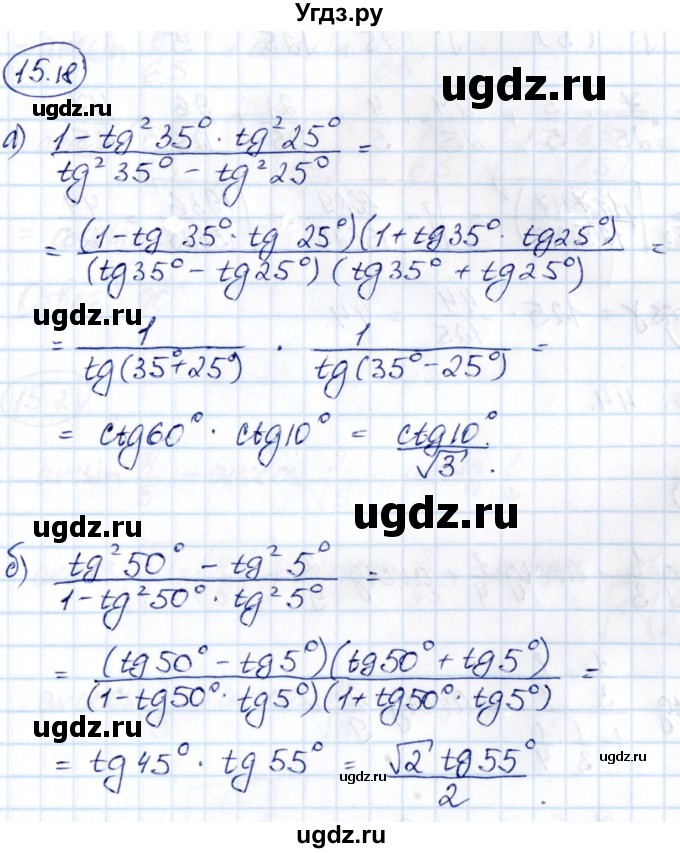 Угдз.ру
15.18
ugdz.ru
ugdz.ru
а) (1 - tg²35° · tg²25°)/(tg²35° - tg²25°) =
= ((1 - tg 35° · tg 25°)(1 + tg35° · tg25°))/((tg35° - tg25°)(tg35° + tg25°)) =
ugdz.ru
= 1/(tg(35°+25°)) · 1/(tg(35°-25°)) =
= ctg60° · ctg10° = ctg10°/√3.
ugdz.ru
ugdz.ru
б) (tg²50° - tg²5°)/(1 - tg²50° · tg²5°) =
= ((tg50° - tg5°)(tg50° + tg5°))/((1 - tg50° · tg5°)(1 + tg50° · tg5°)) =
ugdz.ru
= tg45° · tg55° = √2 tg55°/2.
ugdz.ru
ugdz.ru
ugdz.ru